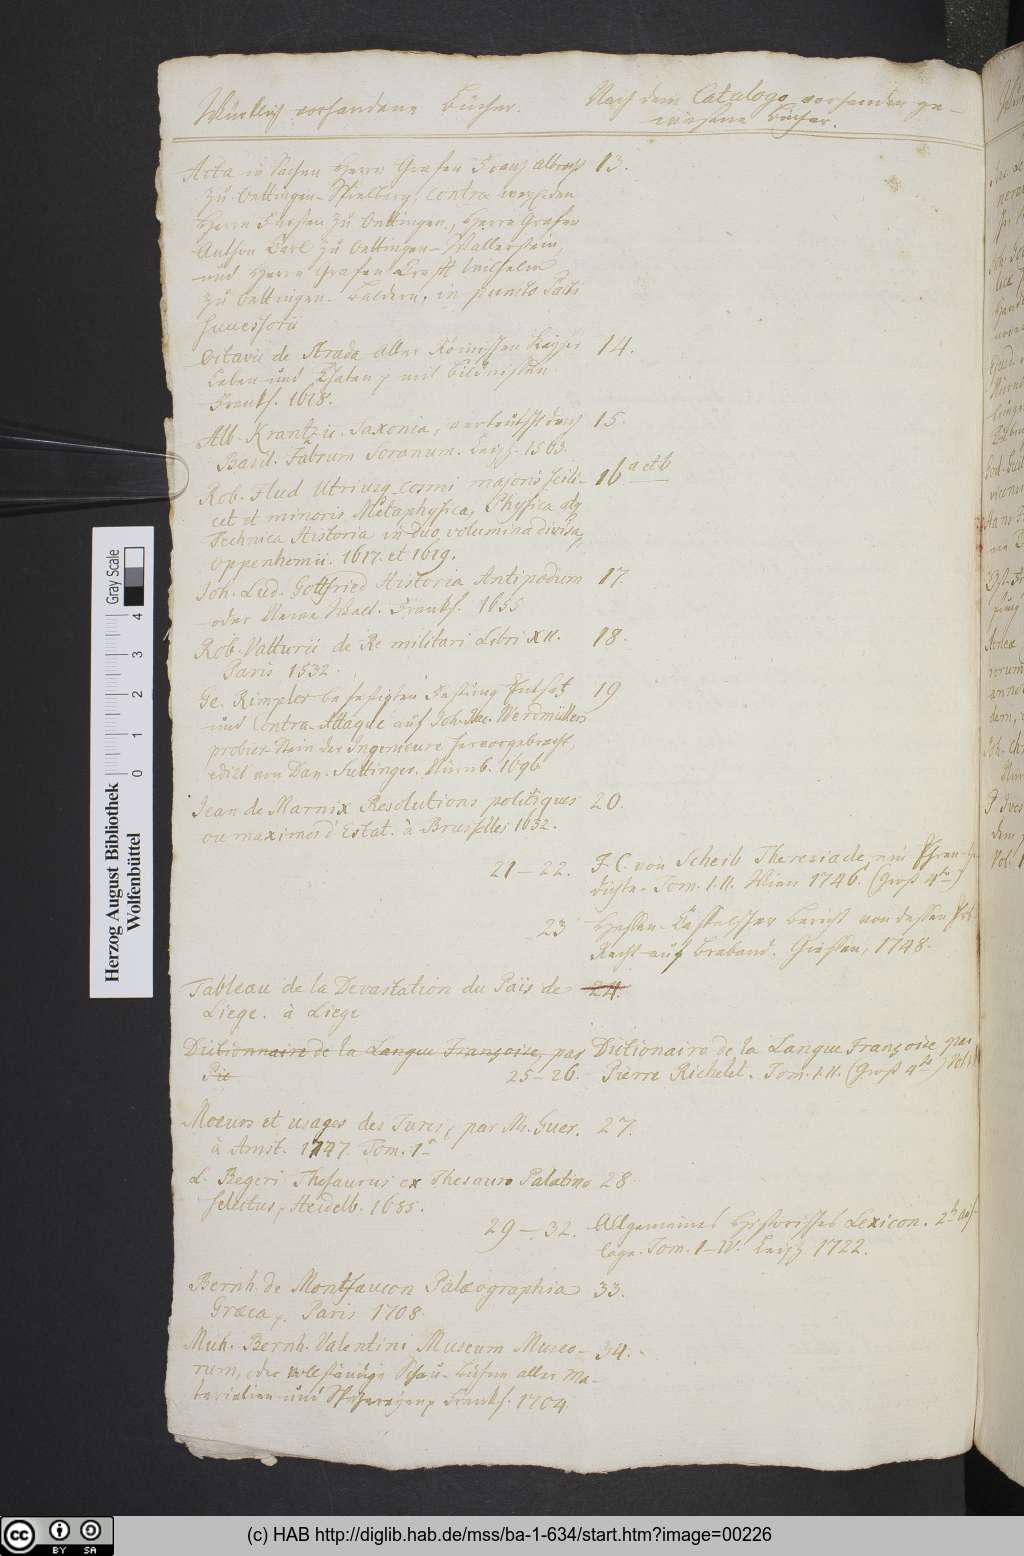 Würcklich vorhandene Bücher.
Nach dem Catalogo vorhanden ge-
wesene Bücher.
Acta in Sachen Herrn Grafen Franz Albrecht 13.
zu Oettingen-Spielberg, contra weyl. den
Herrn Fürsten zu Oettingen, Herrn Grafen
Anthon Carl zu Oettingen-Wallerstein,
und Herrn Grafen Crafft Wilhelm
zu Oettingen-Baldern, in puncto
successorii
Octavii de Strada aller Römischen Kayser 14.
Leben und Thaten, mit Bildnissen
Franckf. 1618.
Alb. Krantzii Saxonia, verteutscht durch 15.
Basil. Fabrum Soranum. Leipz. 1563.
Rob. Flud Utriusq. cosmi majoris scili- 16 a et b
cet et minoris Metaphysica, Physica atq
Technica Historia in duo volumina divisa,
Oppenhemii. 1617. et 1619.
Joh. Lud. Gottfried Historia Antipodum 17.
oder Newe Welt. Franckf. 1655
Rob. Valturii de Re militari Libri XII. 18.
Paris 1532.
Ge. Rimpler befestigten Festung Entsatz 19
und Contra-Attaque auf Joh. Jac. Werdmüllers
probier-Stein der Ingenieure hervorgebracht,
edirt von Dan. Suttinger. Nürnb. 1696
Jean de Marnix Resolutions politiques 20.
ou maximes d'Estat. à Brusselles 1632.
21-22. F. C. von Scheib Theresiade, ein Ehren-Ge-
dichte. Tom. I. II. Wien 1746. (Groß 4to)
23 Hessen-Casselscher Bericht von dessen Erb-
Recht auf Braband. Giessen, 1748.
Tableau de la Devastation du Païs de 24.
Liege. à Liege
Dictionnaire de la Langue Françoise, par
Pie
25-26. Dictionaire de la Langue Françoise par
Pierre Richelet. Tom. I. II. (Groß 4to)
Moeurs et usages des Turcs, par M. Guer. 27.
à Amst. 1747. Tom. 1
L. Begeri Thesaurus ex Thesauro Palatino 28
selectus, Heidelb. 1685.
29-32. Allgemeines Historisches Lexicon. 2te Auf-
lage. Tom. I-IV. Leipz. 1722.
Bernh. de Montfaucon Palæographia 33.
Græca, Paris 1708.
Mich. Bernh. Valentini Museum Museo- 34.
rum, oder vollständige Schau-Bühne aller Ma-
terialien und Specereyen, Franckf. 1704.
Herzog August Bibliothek
Wolfenbüttel
0 1 2 3 4
Gray Scale
cc BY SA
(c) HAB http://diglib.hab.de/mss/ba-1-634/start.htm?image=00226